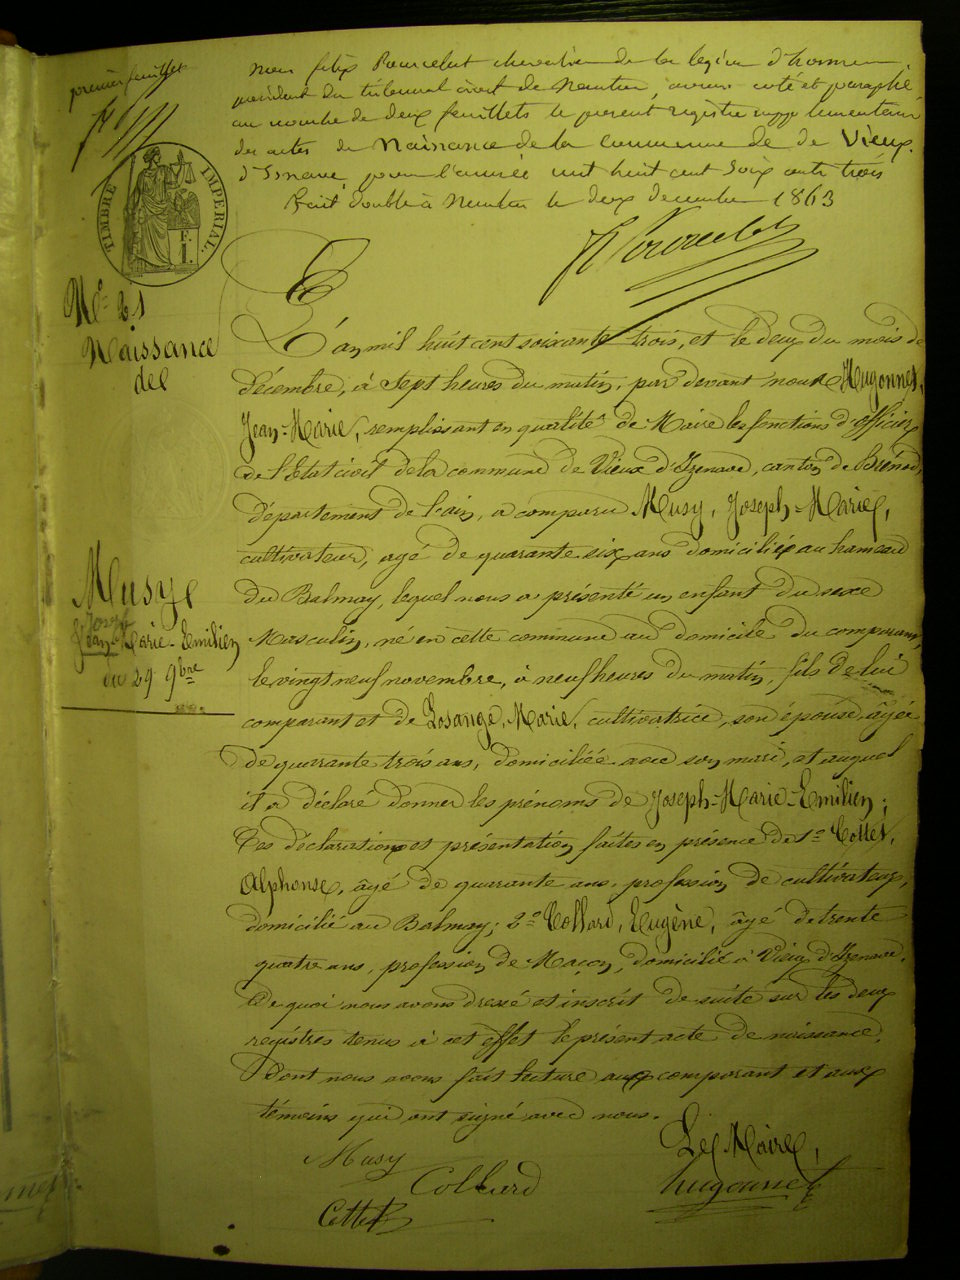 premier feuillet
nous felix Pourcelot chevalier de la legion d'honneur
president du tribunal civil de Nantua, avons coté et paraphé
au nombre de deux feuillets le present registre supplementaire
des actes de Naissance de la commune de de Vieux.
d'Isnave, pour l'année mil huit cent soixante trois
Fait double à Nantua le deux decembre 1863
TIMBRE IMPERIAL.
F. I.
N°. 21
Naissance
de
L'an mil huit cent soixante trois, et le deux du mois de
décembre, à sept heures du matin, par devant nous Hugonnet,
Jean-Marie, remplissant en qualité de Maire les fonctions d'officier
de l'Etat civil de la commune de Vieux d'Izenave, canton de Brénod,
département de l'ain, a comparu Musy, Joseph-Marie,
cultivateur, agé de quarante six ans domicilié au hameau
du Balmay, lequel nous a présenté un enfant du sexe
Masculin, né en cette commune au domicile du comparant,
le vingt neuf novembre, à neuf heures du matin, fils de lui
comparant et de Losange, Marie, cultivatrice, son épouse, âgée
de quarante trois ans, domiciliée avec son mari, et auquel
il a déclaré donner les prénoms de Joseph-Marie-Emilien;
Ces déclaration et présentation faites en présence de 1° Cottet,
Alphonse, âgé de quarante ans, profession de cultivateur,
domicilié au Balmay; 2° Collard, Eugène, âgé de trente
quatre ans, profession de Maçon, domicilié à Vieux d'Izenave.
De quoi nous avons dressé et inscrit de suite sur les deux
registres tenus à cet effet le présent acte de naissance.
Dont nous avons fait lecture aux comparant et aux
témoins qui ont signé avec nous.
Musy
Joseph
Jean-Marie-Emilien
du 29 9bre
Le Maire,
Musy
Collard
hugonnet
Cottet